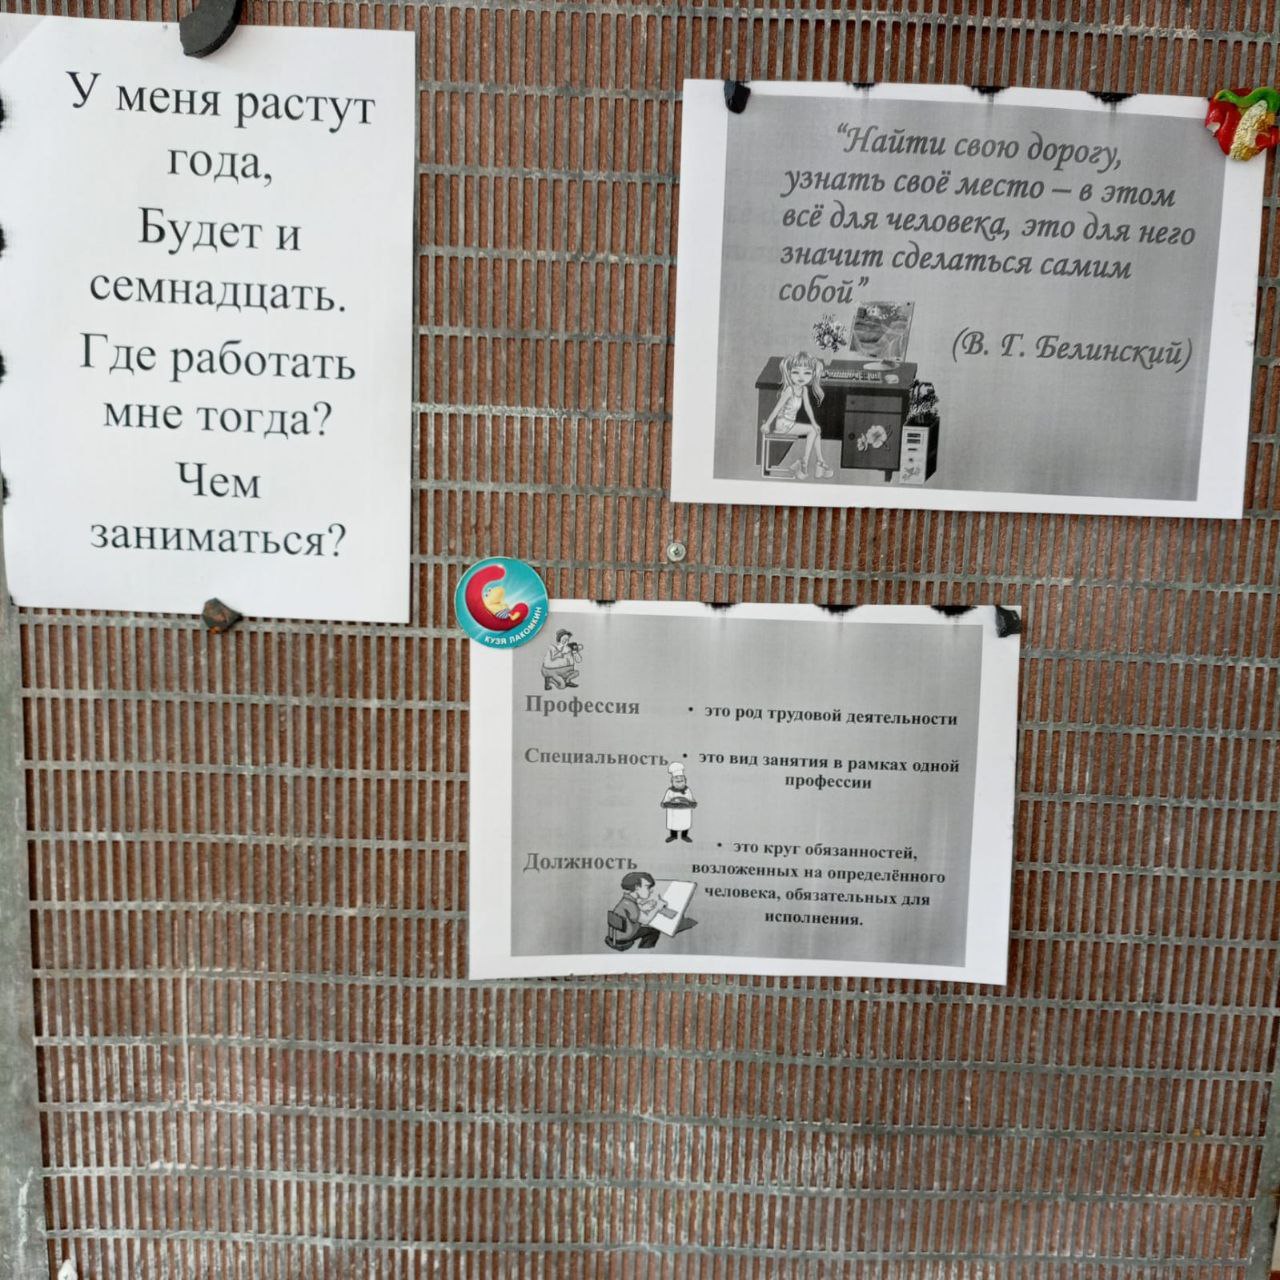 У меня растут
года,
Будет и
семнадцать.
Где работать
мне тогда?
Чем
заниматься?
“Найти свою дорогу,
узнать своё место – в этом
всё для человека, это для него
значит сделаться самим
собой”
(В. Г. Белинский)
КУЗЯ ЛАКОМКИН
Профессия
• это род трудовой деятельности
Специальность
• это вид занятия в рамках одной
профессии
Должность
• это круг обязанностей,
возложенных на определённого
человека, обязательных для
исполнения.